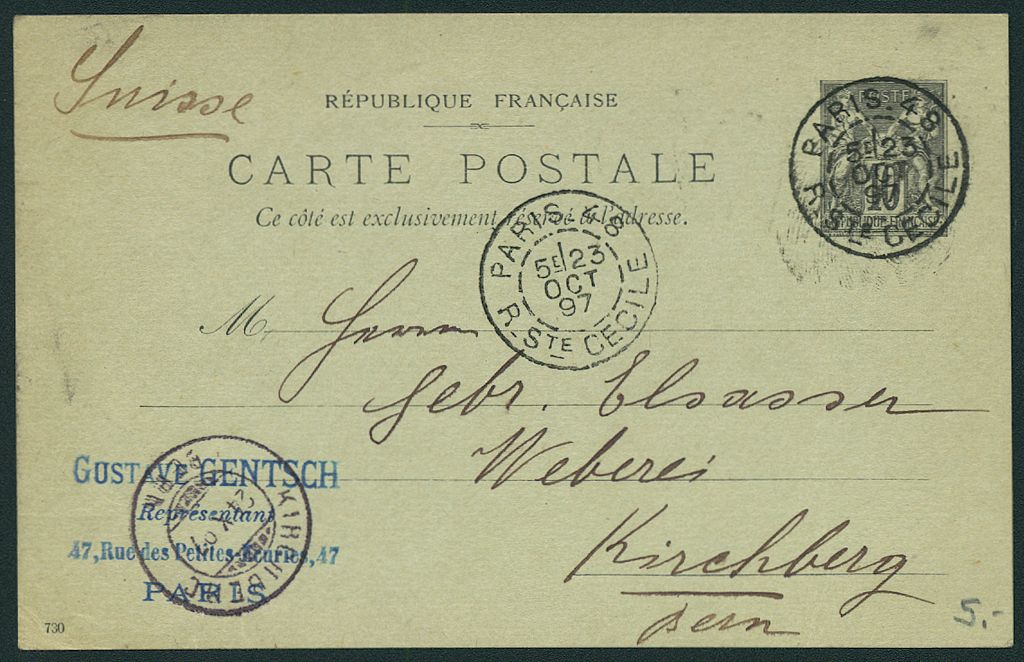 Suisse
RÉPUBLIQUE FRANÇAISE
CARTE POSTALE
Ce côté est exclusivement réservé à l'adresse.
POSTES
10
RÉPUBLIQUE FRANÇAISE
PARIS-48
5E 23
OCT
97
R. STE CECILE
PARIS 48
5E 23
OCT
97
R. STE CECILE
M. Herren
Gebr. Elsasser
Weberei
Kirchberg
Bern
GUSTAVE GENTSCH
Représentant
47, Rue des Petites-Écuries, 47
PARIS
KIRCHBERG
BERN
730
5.-